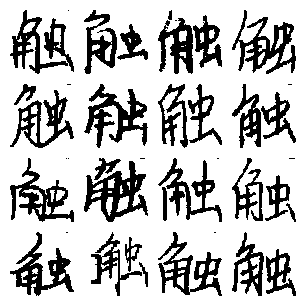 触触触触
触触触触
触触触触
触触触触